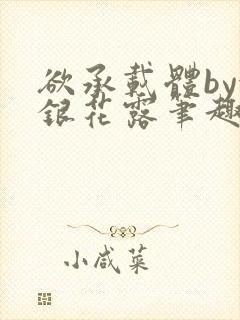 欲承载體by
銀花露筆趣
小咸菜